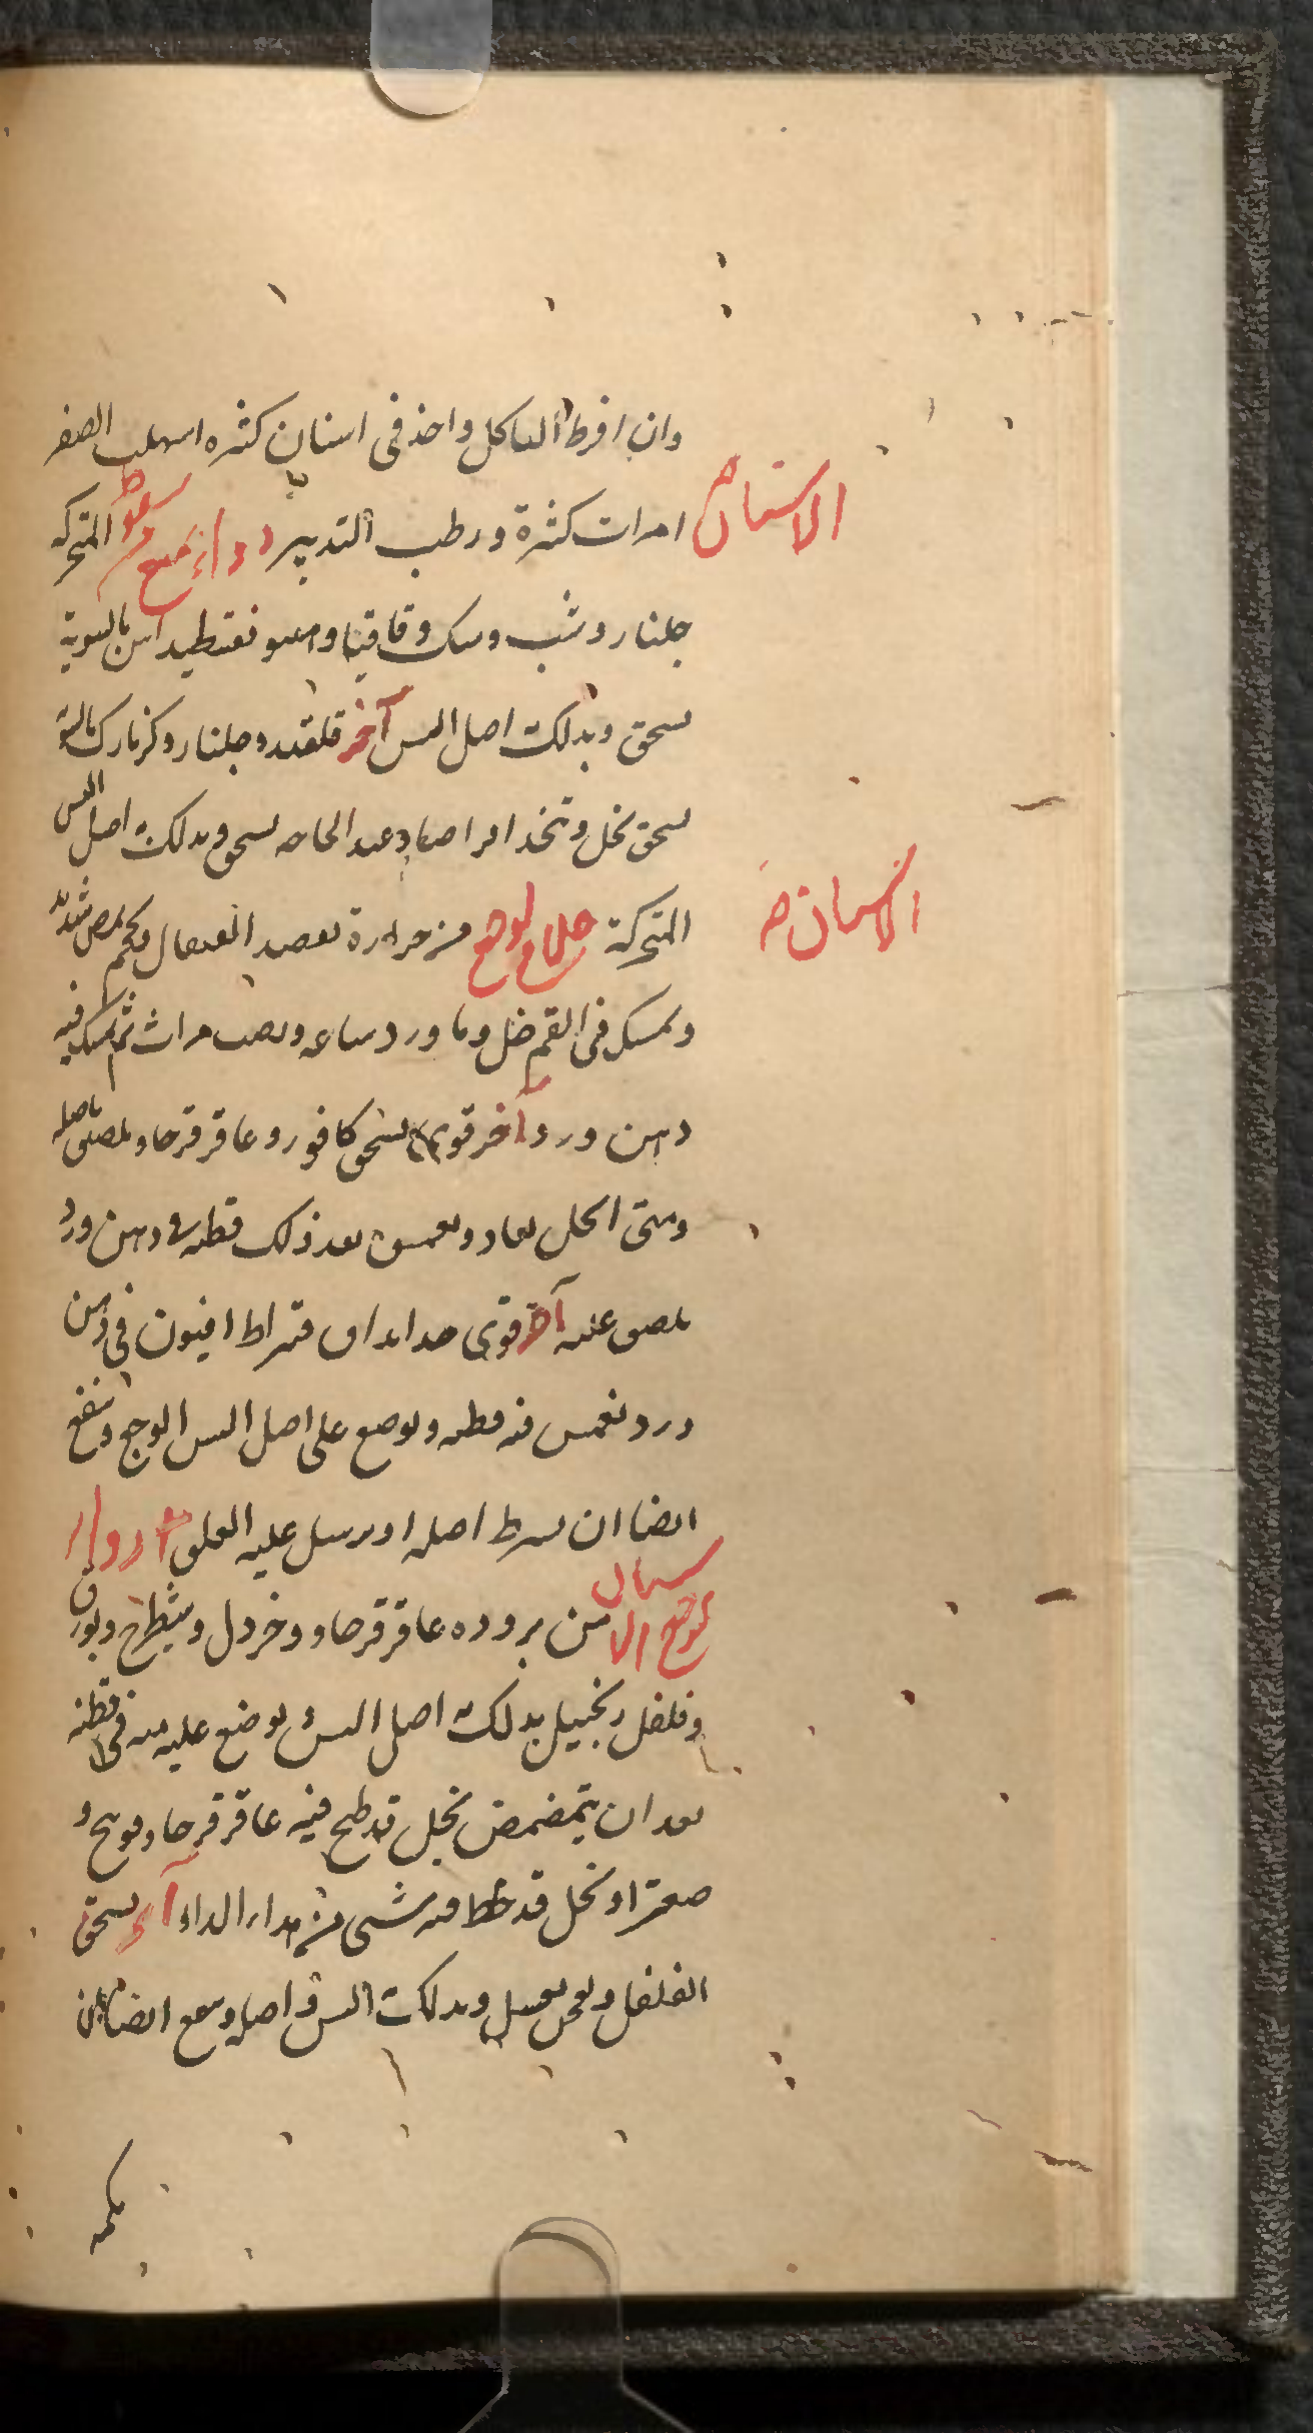 وان افرط التاكل واخذ فى اسنان كثيره اسهلت الصفر
امرات كثيرة ورطب التدبير دواء يمنع سقوط الاسنان المتحركه
جلنار وشب وسك وقاقيا بالسوية
يسحق ويدلك اصل السن آخر قلقند وجلنار وكزمازك بالسو
يسحق بخل وتخذ اقراصا وعند الحاجه يسحق ويدلك اصل السن
المتحركة علاج لوجع الاسنان من حرارة يفصد القيفال
ويمسك فى الفم خل وماورد ساعه ويصب مرات ثم يمسك فيه
دهن ورد آخر قوى يسحق كافور وعاقرقرحا ويلصق باصله
ومتى انحل يعاد ويغمس بعد ذلك قطنه فى دهن ورد
يلصق عليه آخر قوى جدا يداف قيراط افيون فى دهن
ورد يغمس فيه قطنه ويوضع على اصل السن الوجع وينفع
ايضا ان يشرط اصله او يرسل عليه العلق دواء
لوجع الاسنان من بروده عاقرقرحا وخردل وشيطرج وبورق
وفلفل زنجبيل يدلك اصل السن يوضع عليه منه فى قطنه
بعد ان يتمضمض بخل قد طبخ فيه عاقرقرحا وفوتنج و
صعتر او بخل قد خلط فيه شى من هذا الداء آخر يسحق
الفلفل ويعجن بعسل ويدلك السن واصله وينفع ايضا ان
يكمد